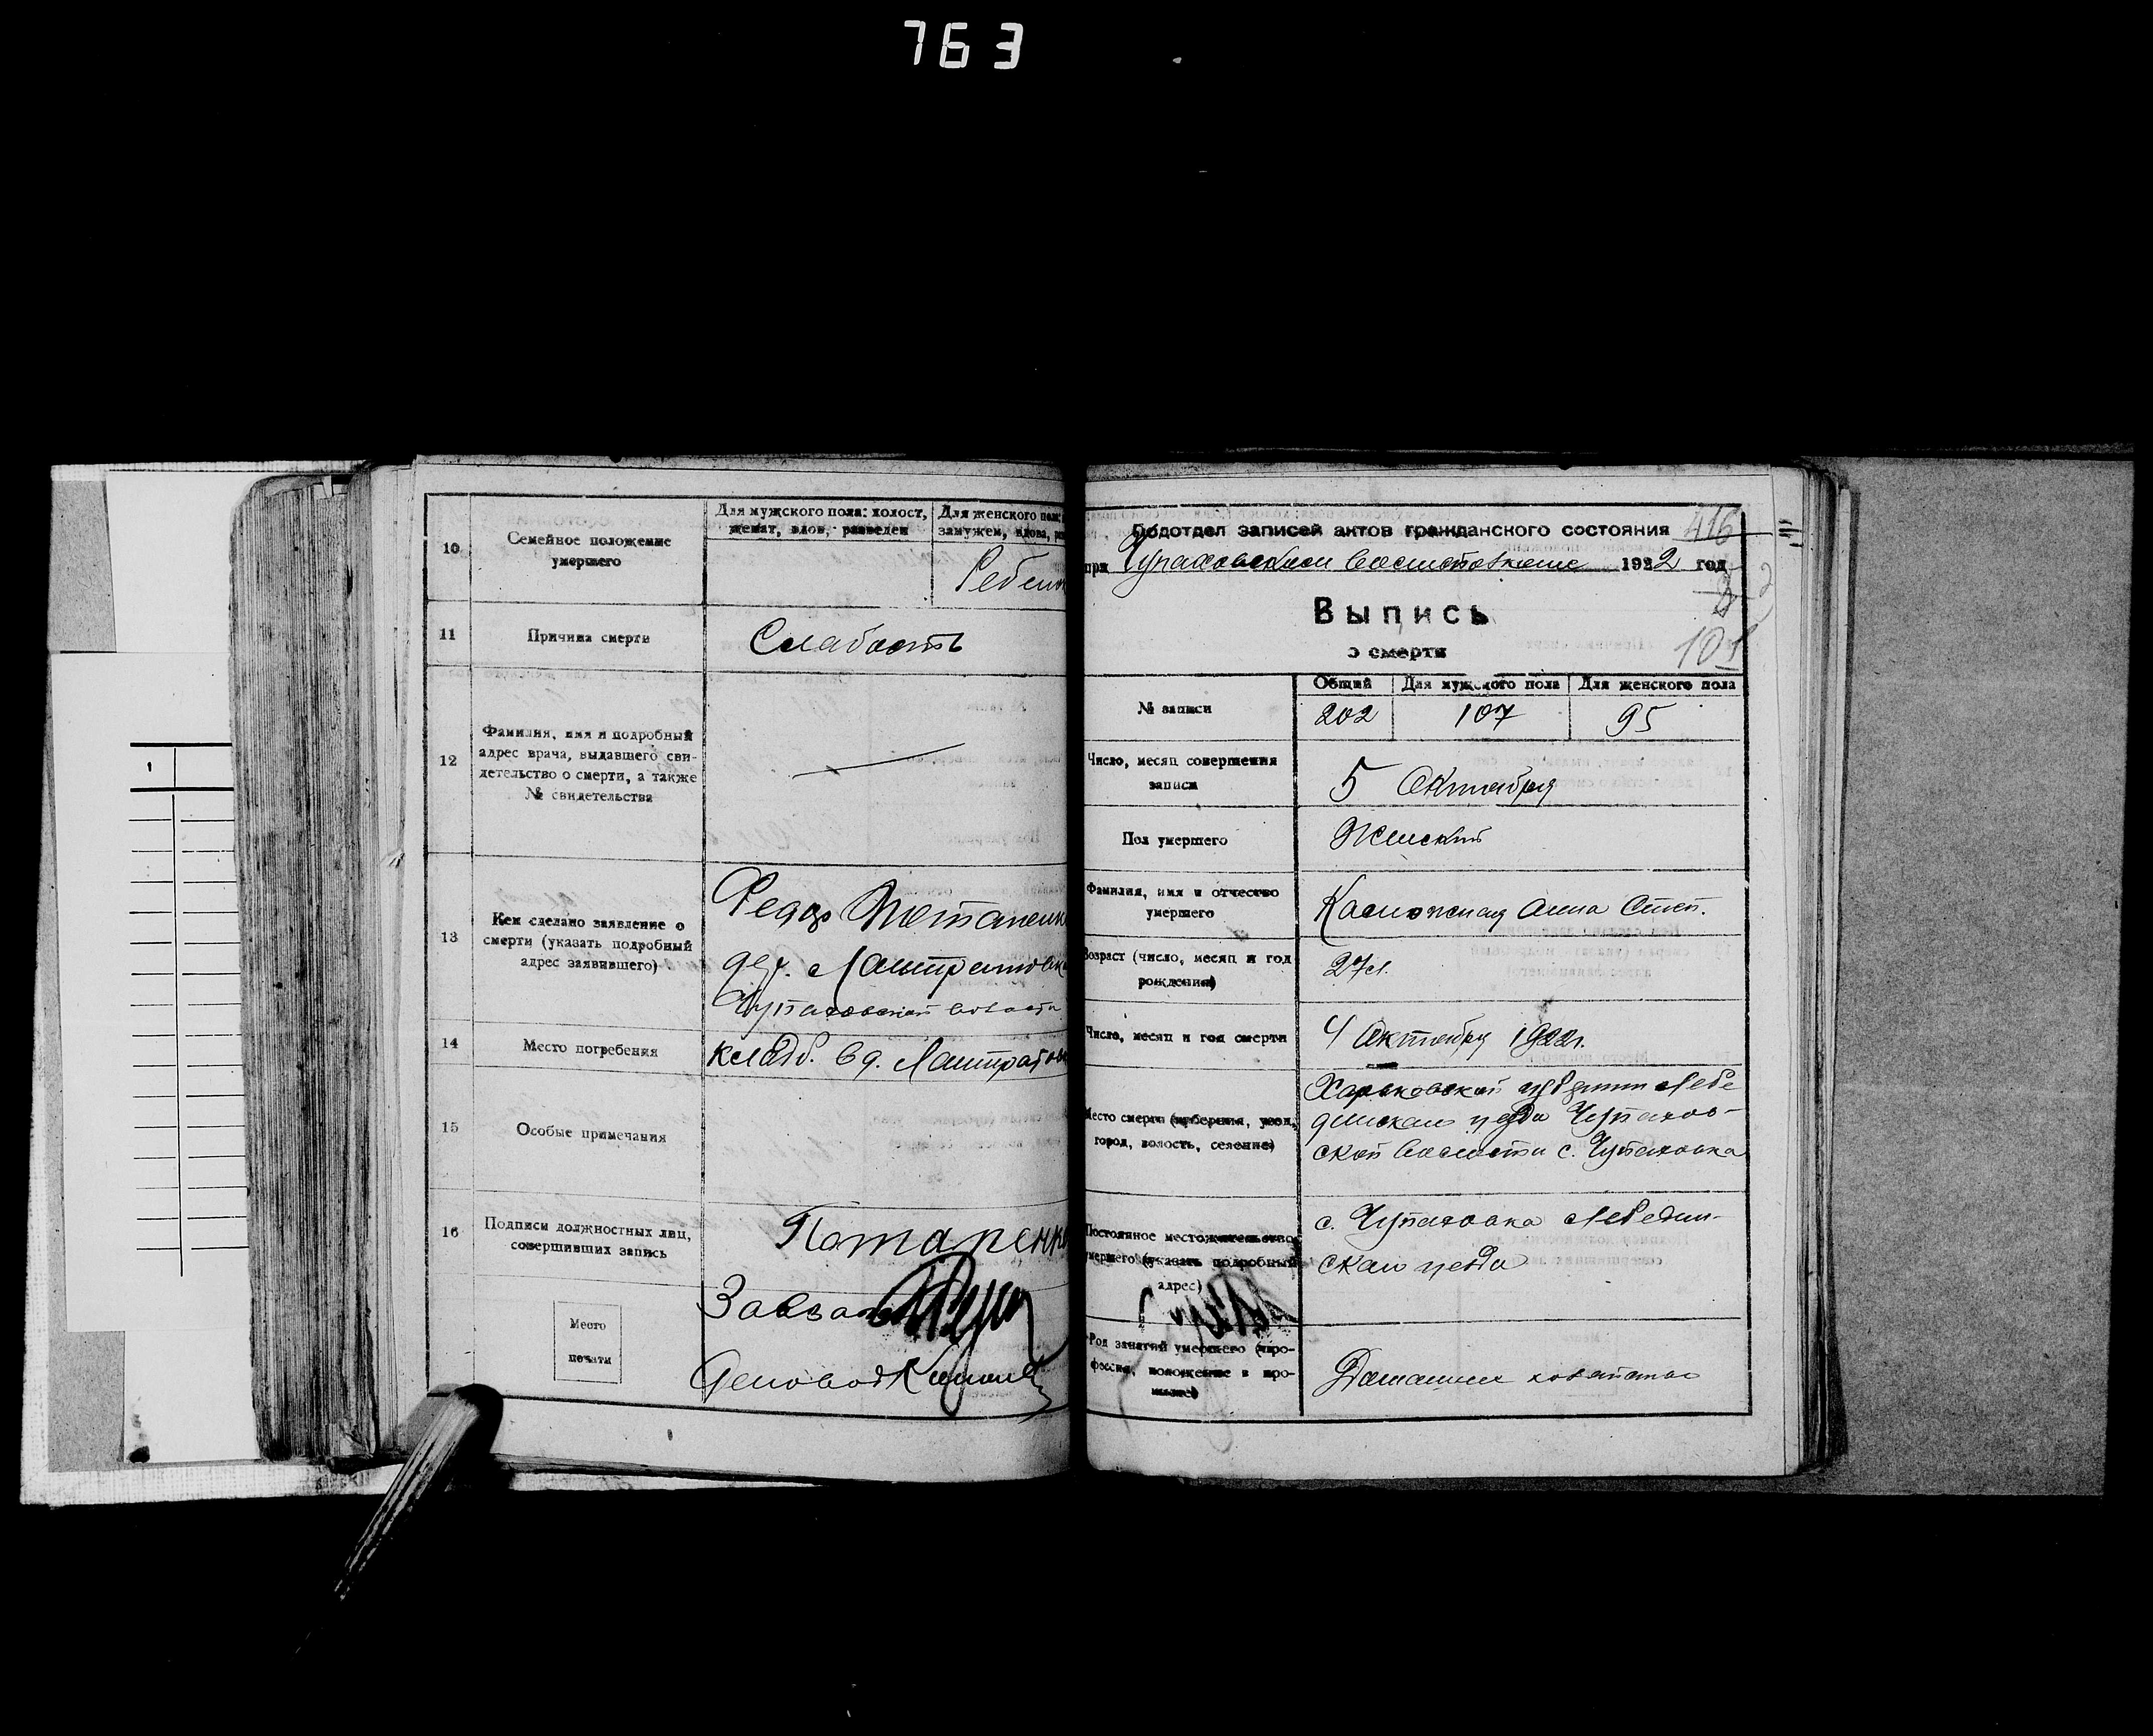 763
10
Семейное положение
умершего
Для мужского пола: холост,
женат, вдов, разведен
Для женского пола:
замужем, вдова,
Ребенок
11
Причина смерти
Слабость
12
Фамилия, имя и подробный
адрес врача, выдавшего сви-
детельство о смерти, а также
№ свидетельства
—
13
Кем сделано заявление о
смерти (указать подробный
адрес заявившего)
Федор Потапенко
дер.
Чупаховской волости
14
Место погребения
кладб. в д.
15
Особые примечания
16
Подписи должностных лиц,
совершивших запись
Потапенко
Завзаг
Деловод
Место
печати
Подотдел записей актов гражданского состояния
416
при Чупаховском Волисполкоме 1922 год
Выпись
о смерти
101
№ записи
Общий
Для мужского пола
Для женского пола
202
107
95
Число, месяц совершения
записи
5 Октября
Пол умершего
Женский
Фамилия, имя и отчество
умершего
Анна Степ.
Возраст (число, месяц и год
рождения)
27 л.
Число, месяц и год смерти
4 Октября 1922 г.
Место смерти (губерния, уезд,
город, волость, селение)
Харьковской губернии Лебе
динском уезда Чупахов-
ской Волости с. Чупаховка
Постоянное местожительство
умершего (указать подробный
адрес)
с. Чупаховка Лебедин-
ском уезда
Род занятий умершего (про-
фессия, положение в про-
мысле)
Домашнее